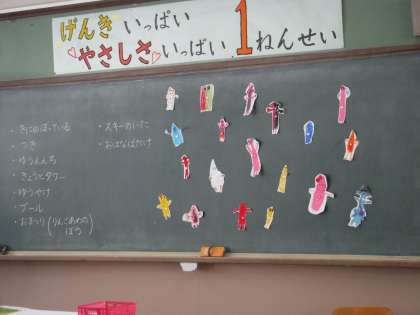 げんき いっぱい
やさしさ いっぱい 1ねんせい
・きにのぼっている
・つき
・ゆうえんち
・きょうとタワー
・ゆうやけ
・プール
・おまつり(りんごあめのぼう)
・スキーのいた
・おはなばたけ